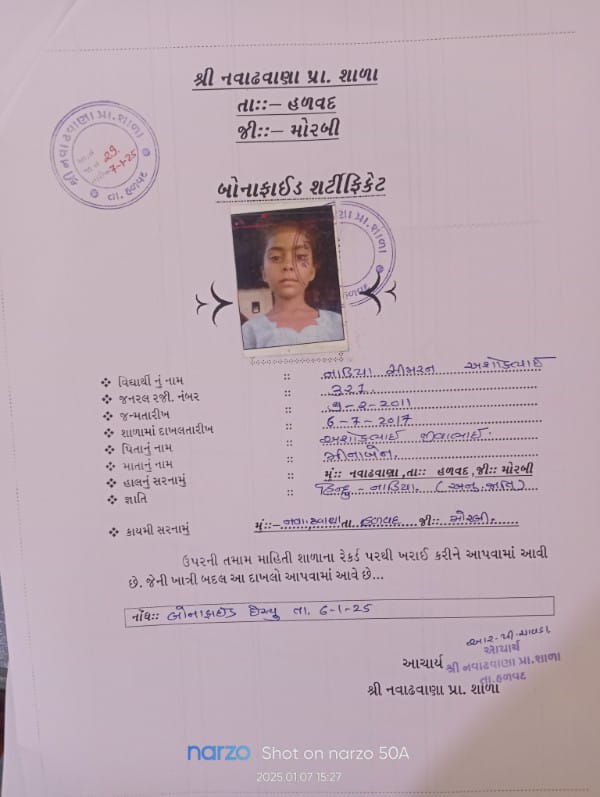 શ્રી નવાઢવાણા પ્રા. શાળા
તા::– હળવદ
જી::– મોરબી
શ્રી નવાઢવાણા પ્રા. શાળા
29
7-1-25
તા. હળવદ
બોનાફાઈડ સર્ટીફિકેટ
❖ વિદ્યાર્થી નું નામ :: નાડિયા સીમરન અશોકભાઈ
❖ જનરલ રજી. નંબર :: 327
❖ જન્મતારીખ :: 9-2-2011
❖ શાળામાં દાખલતારીખ :: 6-7-2017
❖ પિતાનું નામ :: અશોકભાઈ જીવાભાઈ
❖ માતાનું નામ :: મીનાબેન
❖ હાલનું સરનામું :: મું:: નવાઢવાણા,તા:: હળવદ,જી:: મોરબી
❖ જ્ઞાતિ :: હિન્દુ - નાડિયા. (અનુ.જાતિ)
❖ કાયમી સરનામું :: મું::–નવાઢવાણા તા. હળવદ જી:: મોરબી.
ઉપરની તમામ માહિતી શાળાના રેકર્ડ પરથી ખરાઈ કરીને આપવામાં આવી
છે. જેની ખાત્રી બદલ આ દાખલો આપવામાં આવે છે...
નોંધ:: બોનાફાઈડ ઈસ્યુ તા. 6-1-25
આર.પી.ચાવડા
આચાર્ય
આચાર્ય શ્રી નવાઢવાણા પ્રા.શાળા
તા.હળવદ
શ્રી નવાઢવાણા પ્રા. શાળા
narzo Shot on narzo 50A
2025.01.07 15:27